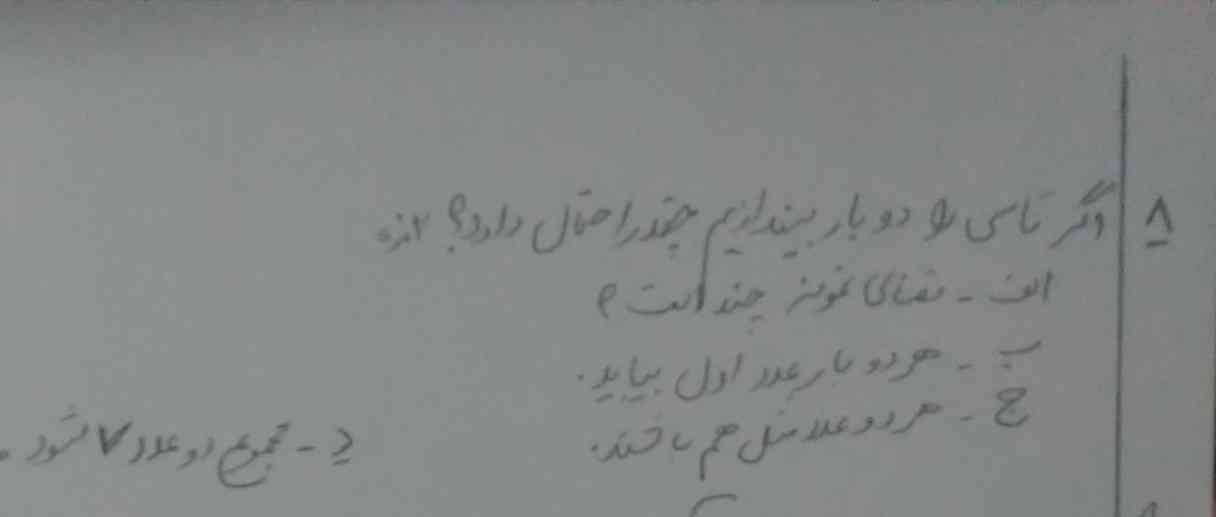 ۸ اگر تاسی را دو بار بیندازیم چقدر احتمال دارد؟ ۲نمره
الف - فضای نمونه چند است؟
ب - هر دو بار عدد اول بیاید.
ج - هر دو عدد مثل هم باشند.
د - مجموع دو عدد ۷ شود.